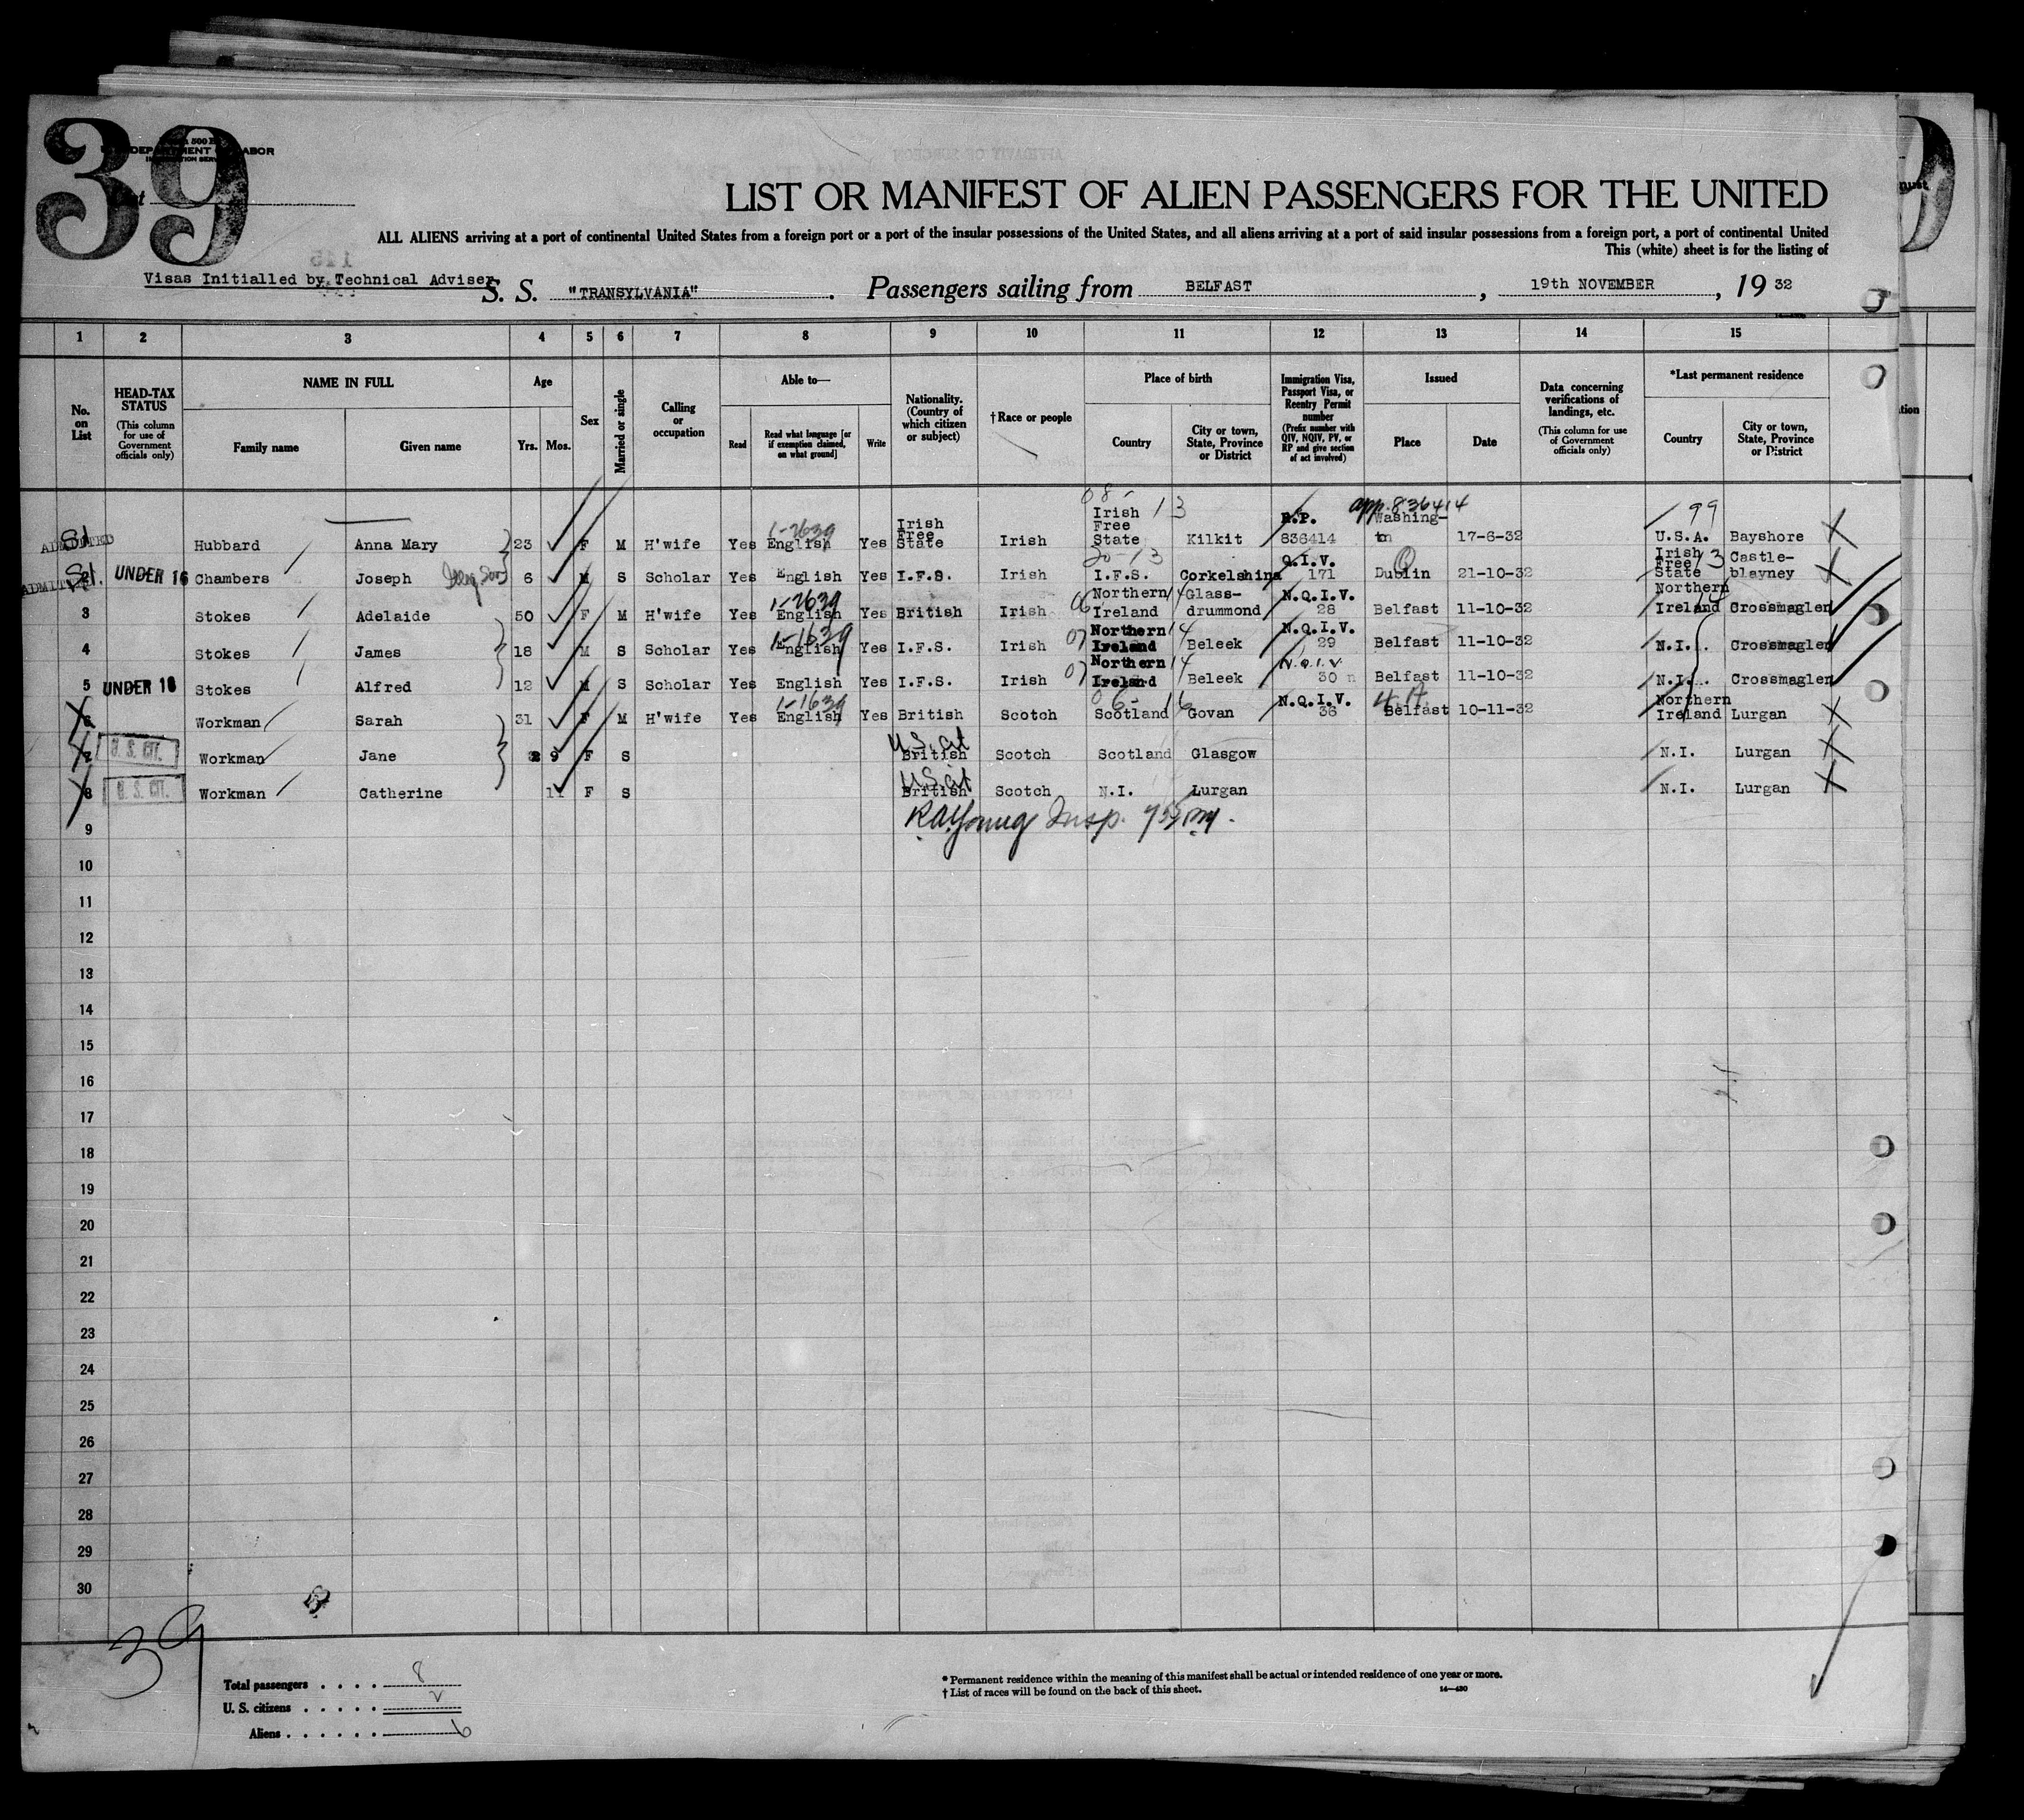 39
U. S. DEPARTMENT OF LABOR
LIST OR MANIFEST OF ALIEN PASSENGERS FOR THE UNITED
ALL ALIENS arriving at a port of continental United States from a foreign port or a port of the insular possessions of the United States, and all aliens arriving at a port of said insular possessions from a foreign port, a port of continental United
This (white) sheet is for the listing of
Visas Initialled by Technical Adviser
S. S. "TRANSYLVANIA". Passengers sailing from BELFAST, 19th NOVEMBER, 19 32
1 2 3 4 5 6 7 8 9 10 11 12 13 14 15
No. on List
HEAD-TAX STATUS (This column for use of Government officials only)
NAME IN FULL Family name Given name
Age Yrs. Mos.
Sex
Married or single
Calling or occupation
Able to— Read Read what language [or if exemption claimed, on what ground] Write
Nationality. (Country of which citizen or subject)
†Race or people
Place of birth Country City or town, State, Province or District
Immigration Visa, Passport Visa, or Reentry Permit number (Prefix number with QIV, NQIV, PV, or RP and give section of act involved)
Issued Place Date
Data concerning verifications of landings, etc. (This column for use of Government officials only)
*Last permanent residence Country City or town, State, Province or District
08- 13 app. 836414 99
ADMITTED Hubbard Anna Mary 23 F M H'wife Yes English 1-2639 Yes Irish Free State Irish Irish Free State Kilkit R.P. 836414 Washing-ton 17-6-32 U.S.A. Bayshore
ADMITTED UNDER 16 Chambers Joseph 6 M S Scholar Yes English Yes I.F.S. Irish 20-13 I.F.S. Corkelshina Q.I.V. 171 Dublin 21-10-32 Irish Free State 13 Castle-blayney
3 Stokes Adelaide 50 F M H'wife Yes English 1-2639 Yes British Irish 06 Northern Ireland 14 Glass-drummond N.Q.I.V. 28 Belfast 11-10-32 Northern Ireland 14 Crossmaglen
4 Stokes James 18 M S Scholar Yes English 1-1639 Yes I.F.S. Irish 07 Northern Ireland 14 Beleek N.Q.I.V. 29 Belfast 11-10-32 N.I. Crossmaglen
5 UNDER 16 Stokes Alfred 12 M S Scholar Yes English Yes I.F.S. Irish 07 Northern Ireland 14 Beleek N.Q.I.V. 30 Belfast 11-10-32 N.I. Crossmaglen
6 Workman Sarah 31 F M H'wife Yes English 1-1639 Yes British Scotch 06- 16 Scotland Govan N.Q.I.V. 36 Belfast 10-11-32 Northern Ireland Lurgan
7 U. S. CIT. Workman Jane 9 F S U.S. cit British Scotch Scotland Glasgow N.I. Lurgan
8 U. S. CIT. Workman Catherine 11 F S U.S. cit British Scotch N.I. Lurgan N.I. Lurgan
9 R A Young Insp.
10
11
12
13
14
15
16
17
18
19
20
21
22
23
24
25
26
27
28
29
30
39
Total passengers . . . . 8
U. S. citizens . . . . . 2
Aliens . . . . . . 6
* Permanent residence within the meaning of this manifest shall be actual or intended residence of one year or more.
† List of races will be found on the back of this sheet.
14—430